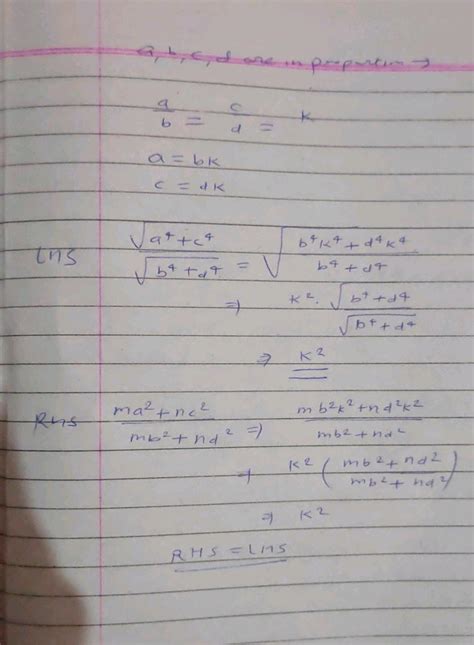 a, b, c, d are in proportion →
a/b = c/d = k
a = bk
c = dk
LHS √(a⁴+c⁴)/√(b⁴+d⁴) = √((b⁴k⁴+d⁴k⁴)/(b⁴+d⁴))
⇒ k². √(b⁴+d⁴)/√(b⁴+d⁴)
⇒ k²
RHS (ma²+nc²)/(mb²+nd²) ⇒ (mb²k²+nd²k²)/(mb²+nd²)
⇒ k² ((mb²+nd²)/(mb²+nd²))
⇒ k²
RHS = LHS